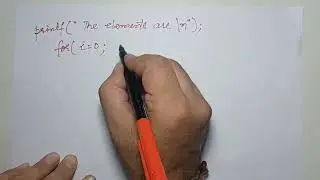 printf(" The elements are \n");
for( i=0;